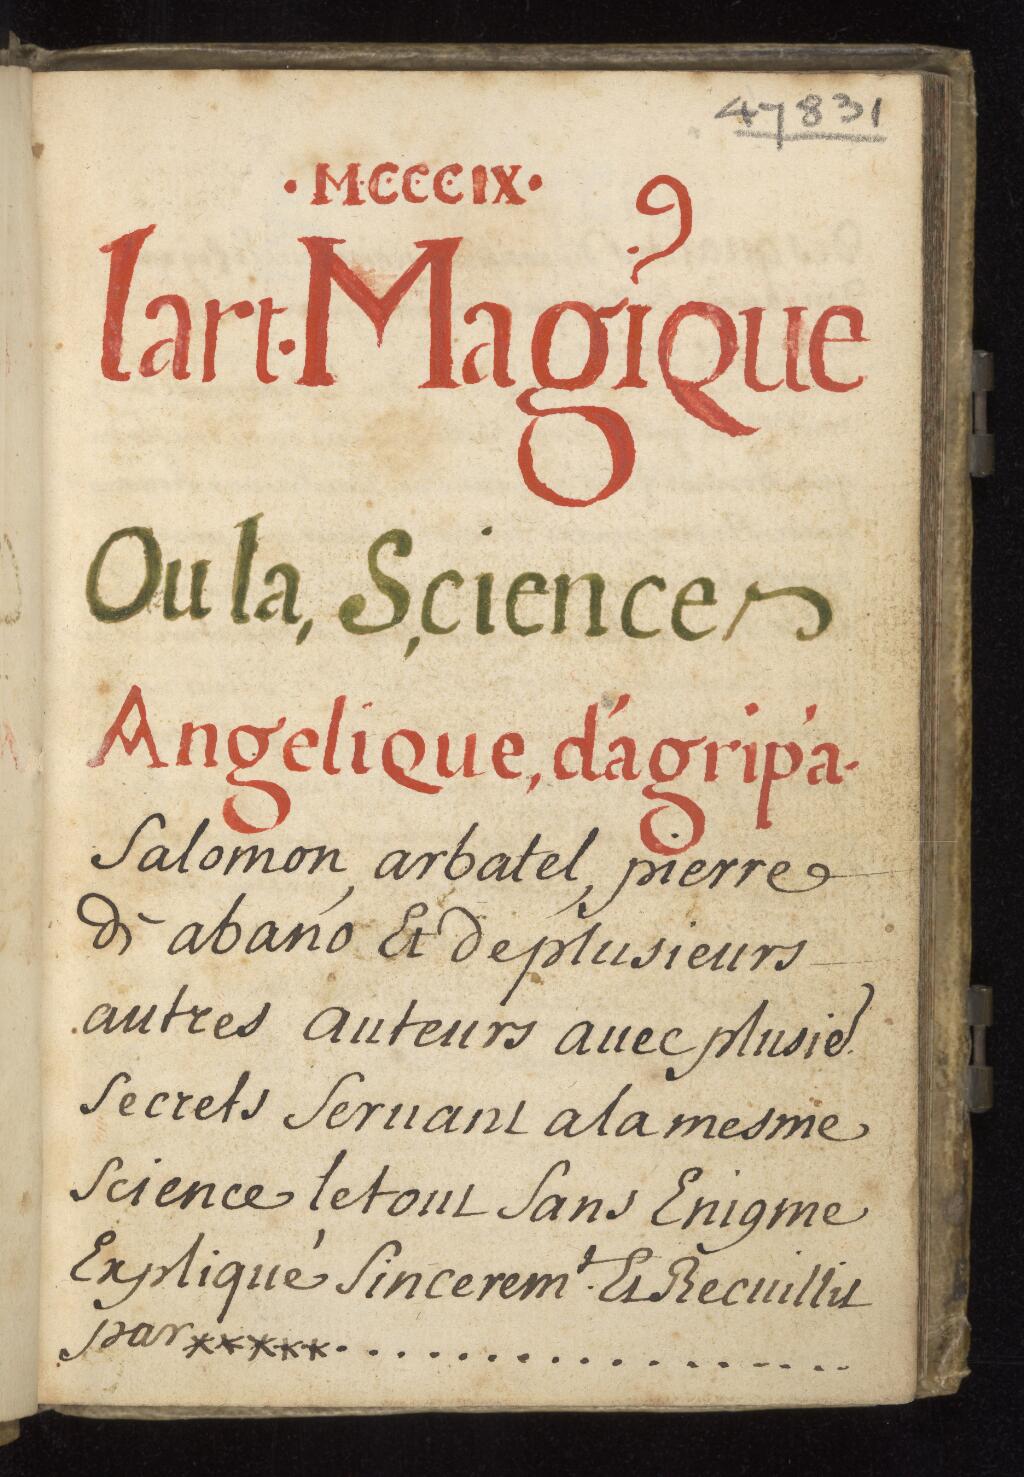 47831
·M·CCCC IX·
lart·Magique
Ou la, Science
Angelique, d'agripa·
Salomon, arbatel, pierre
di abano Et de plusieurs
autres auteurs avec plusie.
Secrets Seruant a la mesme
Science le tout Sans Enigme
Expliqué Sincerem.t Et Recuillit
par xxxxx..................